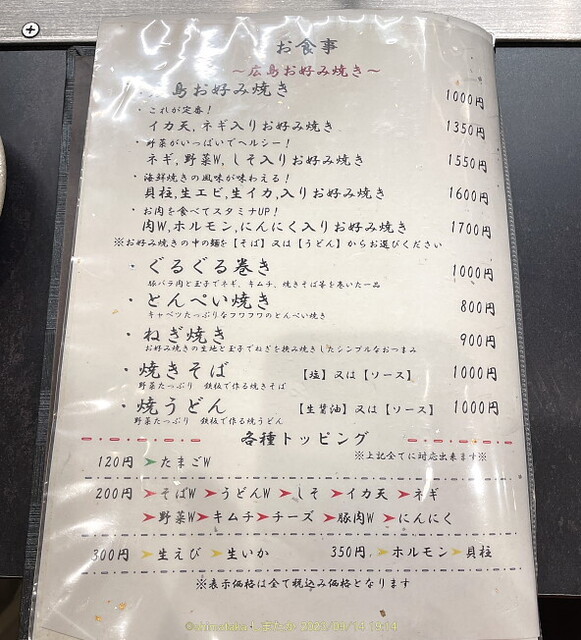 お食事
～広島お好み焼き～
島お好み焼き 1000円
・これが定番！
イカ天,ネギ入りお好み焼き 1350円
・野菜がいっぱいでヘルシー！
ネギ,野菜W,しそ入りお好み焼き 1550円
・海鮮焼きの風味が味わえる！
貝柱,生エビ,生イカ,入りお好み焼き 1600円
・お肉を食べてスタミナUP！
肉W,ホルモン,にんにく入りお好み焼き 1700円
※お好み焼きの中の麺を【そば】又は【うどん】からお選びください
・ぐるぐる巻き 1000円
豚バラ肉と玉子でネギ、キムチ、焼きそば等を巻いた一品
・とんぺい焼き 800円
キャベツたっぷりなフワフワのとんぺい焼き
・ねぎ焼き 900円
お好み焼きの生地と玉子でねぎを挟み焼きしたシンプルなおつまみ
・焼きそば 【塩】又は【ソース】 1000円
野菜たっぷり 鉄板で作る焼きそば
・焼うどん 【生醤油】又は【ソース】 1000円
野菜たっぷり 鉄板で作る焼うどん
各種トッピング
※上記全てに対応出来ます※
120円 ➤たまごW
200円 ➤そばW ➤うどんW ➤しそ ➤イカ天 ➤ネギ
➤野菜W ➤キムチ ➤チーズ ➤豚肉W ➤にんにく
300円 ➤生えび ➤生いか 350円 ➤ホルモン ➤貝柱
※表示価格は全て税込み価格となります
©shimataka しまたか 2023/09/14 19:14